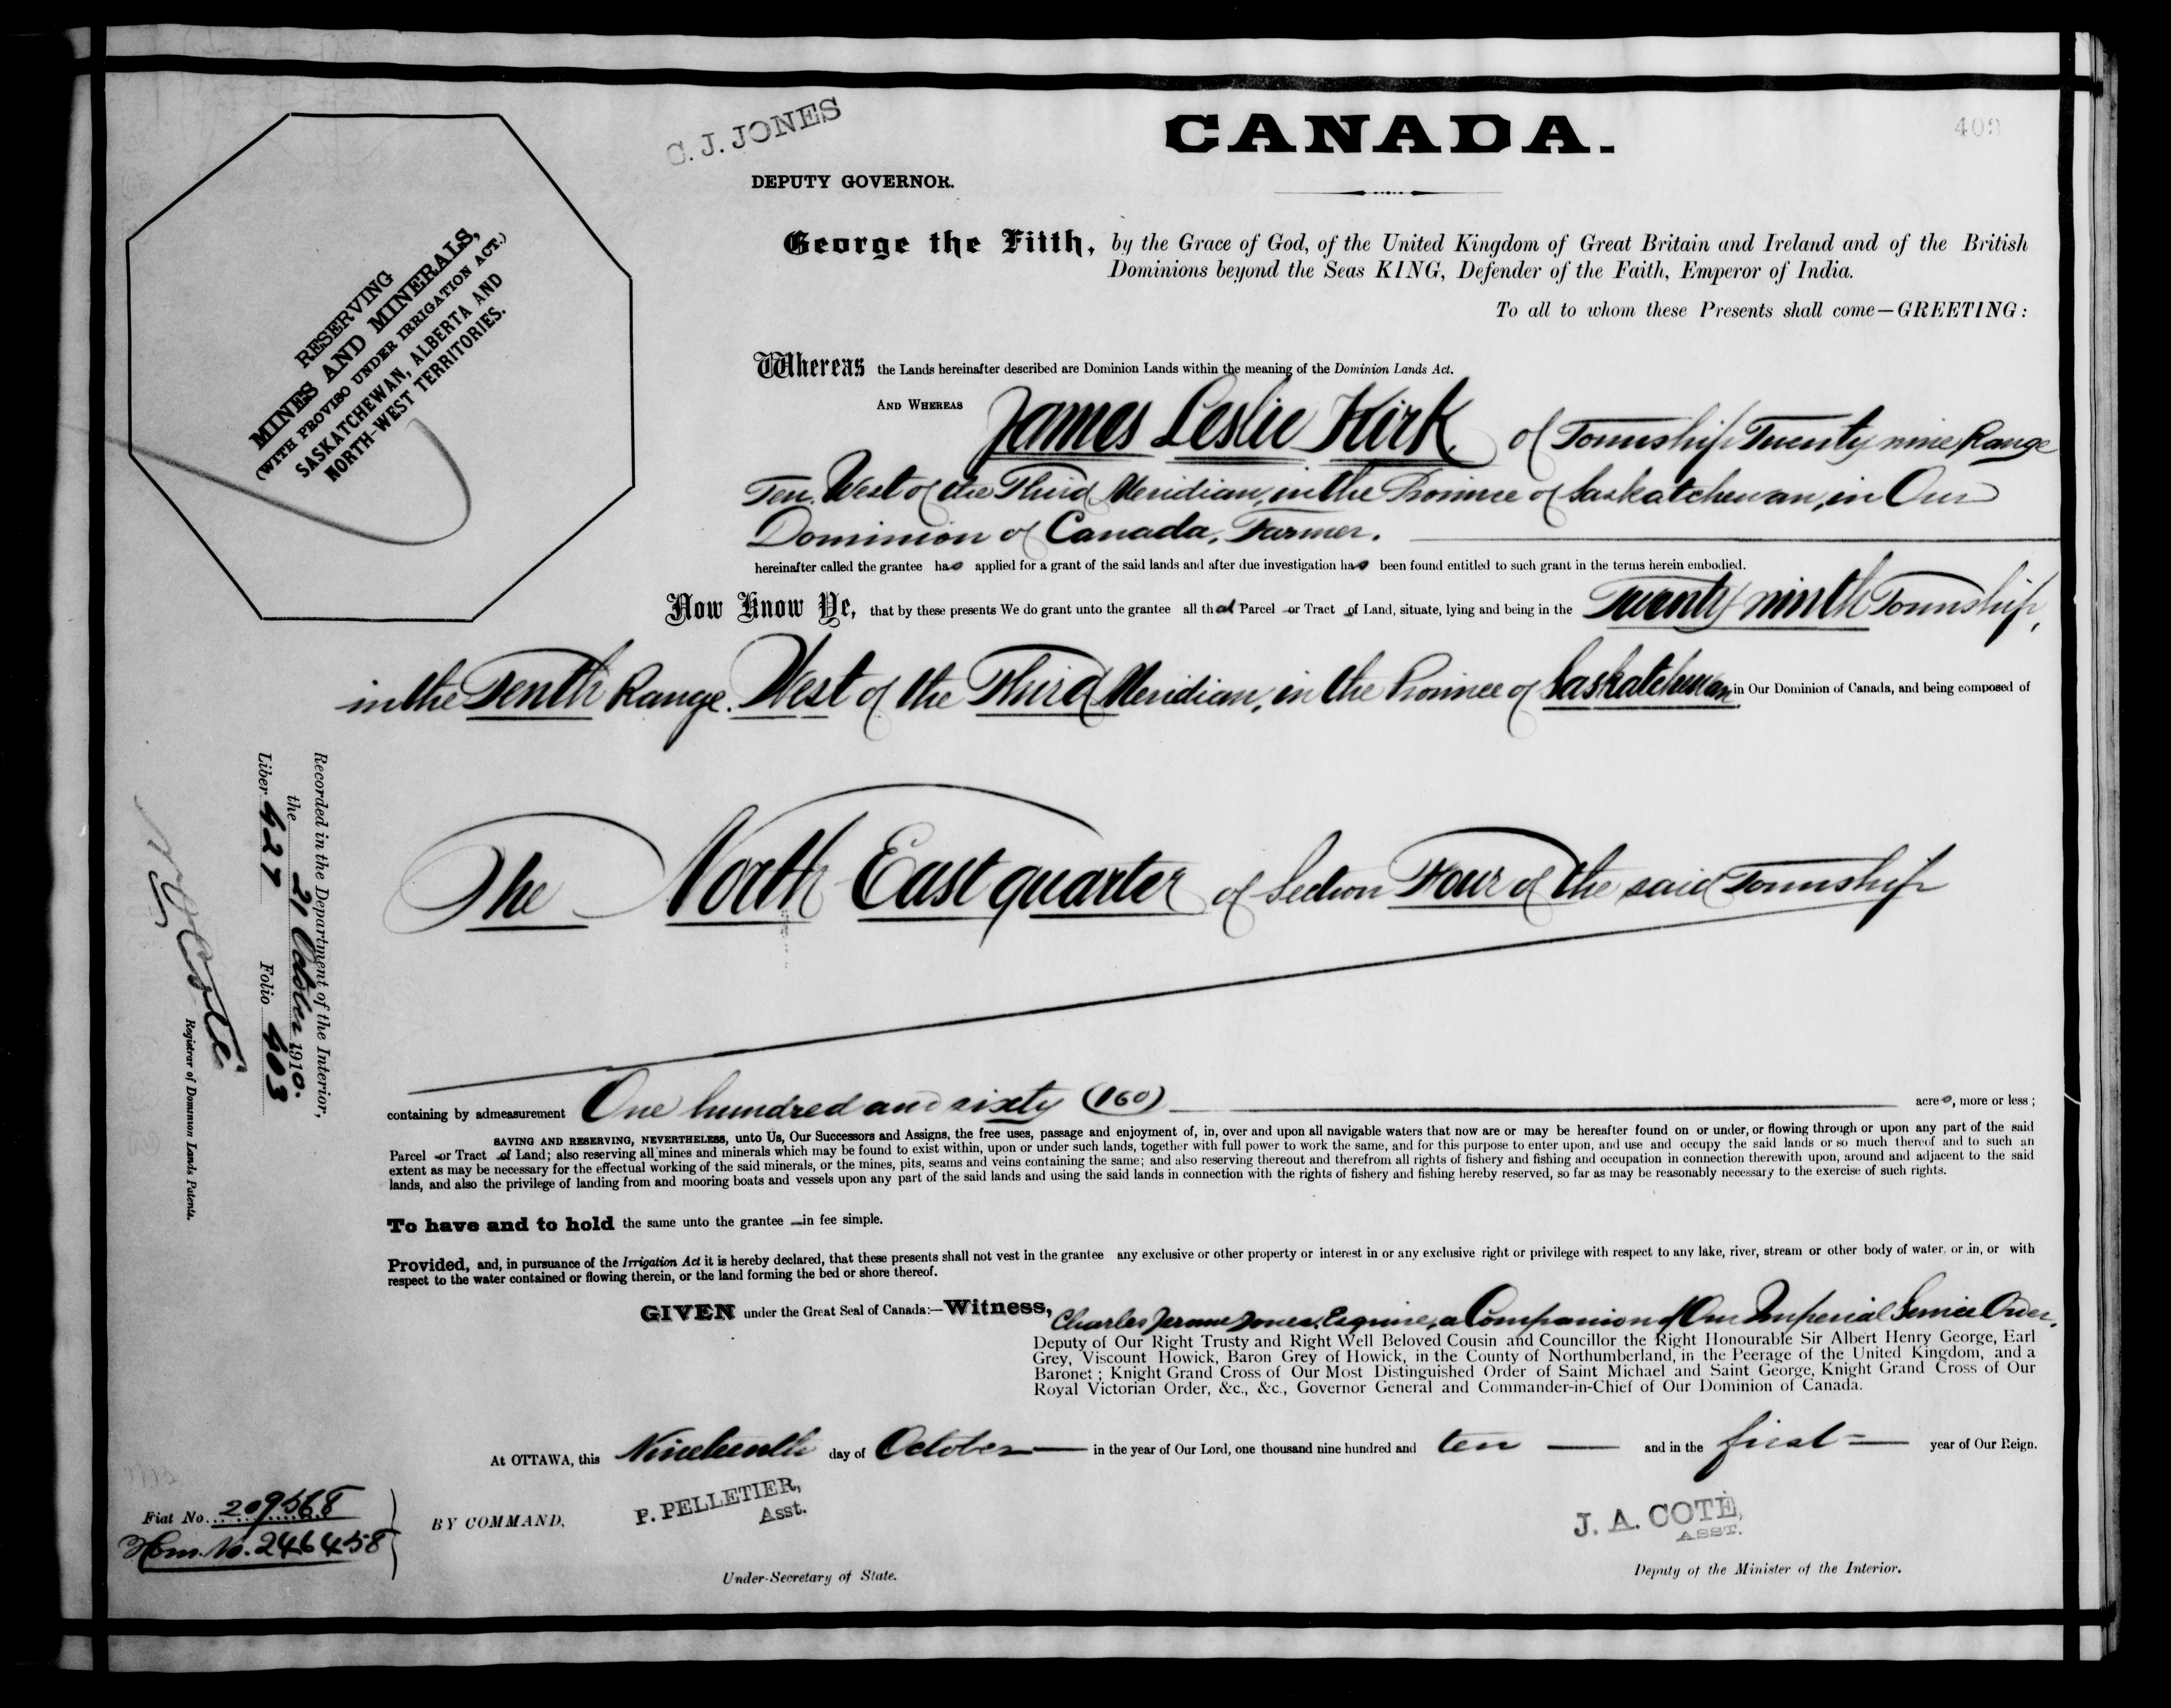 C. J. JONES
DEPUTY GOVERNOR.
CANADA.
RESERVING
MINES AND MINERALS,
(WITH PROVISO UNDER IRRIGATION ACT.)
SASKATCHEWAN, ALBERTA AND
NORTH-WEST TERRITORIES.
George the Fifth, by the Grace of God, of the United Kingdom of Great Britain and Ireland and of the British
Dominions beyond the Seas KING, Defender of the Faith, Emperor of India.
To all to whom these Presents shall come—GREETING:
Whereas the Lands hereinafter described are Dominion Lands within the meaning of the Dominion Lands Act.
AND WHEREAS James Leslie Kirk, of Township Twenty nine Range
Ten, West of the Third Meridian, in the Province of Saskatchewan, in Our
Dominion of Canada, Farmer.
hereinafter called the grantee has applied for a grant of the said lands and after due investigation has been found entitled to such grant in the terms herein embodied.
Now Know Ye, that by these presents We do grant unto the grantee all that Parcel or Tract of Land, situate, lying and being in the Twenty ninth Township,
in the Tenth Range, West of the Third Meridian, in the Province of Saskatchewan in Our Dominion of Canada, and being composed of
The North East quarter of Section Four of the said Township
containing by admeasurement One hundred and sixty (160) acres, more or less;
SAVING AND RESERVING, NEVERTHELESS, unto Us, Our Successors and Assigns, the free uses, passage and enjoyment of, in, over and upon all navigable waters that now are or may be hereafter found on or under, or flowing through or upon any part of the said
Parcel or Tract of Land; also reserving all mines and minerals which may be found to exist within, upon or under such lands, together with full power to work the same, and for this purpose to enter upon, and use and occupy the said lands or so much thereof and to such an
extent as may be necessary for the effectual working of the said minerals, or the mines, pits, seams and veins containing the same; and also reserving thereout and therefrom all rights of fishery and fishing and occupation in connection therewith upon, around and adjacent to the said
lands, and also the privilege of landing from and mooring boats and vessels upon any part of the said lands and using the said lands in connection with the rights of fishery and fishing hereby reserved, so far as may be reasonably necessary to the exercise of such rights.
To have and to hold the same unto the grantee in fee simple.
Provided, and, in pursuance of the Irrigation Act it is hereby declared, that these presents shall not vest in the grantee any exclusive or other property or interest in or any exclusive right or privilege with respect to any lake, river, stream or other body of water, or in, or with
respect to the water contained or flowing therein, or the land forming the bed or shore thereof.
GIVEN under the Great Seal of Canada:—Witness, Charles Jerome Jones, Esquire, a Companion of Our Imperial Service Order,
Deputy of Our Right Trusty and Right Well Beloved Cousin and Councillor the Right Honourable Sir Albert Henry George, Earl
Grey, Viscount Howick, Baron Grey of Howick, in the County of Northumberland, in the Peerage of the United Kingdom, and a
Baronet; Knight Grand Cross of Our Most Distinguished Order of Saint Michael and Saint George, Knight Grand Cross of Our
Royal Victorian Order, &c., &c., Governor General and Commander-in-Chief of Our Dominion of Canada.
At OTTAWA, this Nineteenth day of October in the year of Our Lord, one thousand nine hundred and ten and in the first year of Our Reign.
BY COMMAND,
P. PELLETIER,
Asst.
Under-Secretary of State.
J. A. COTÉ,
ASST.
Deputy of the Minister of the Interior.
Fiat No. 209568
Hom. No. 246458
Recorded in the Department of the Interior,
the 21 October 1910.
Liber 427 Folio 403
N. O. Coté
Registrar of Dominion Lands Patents.